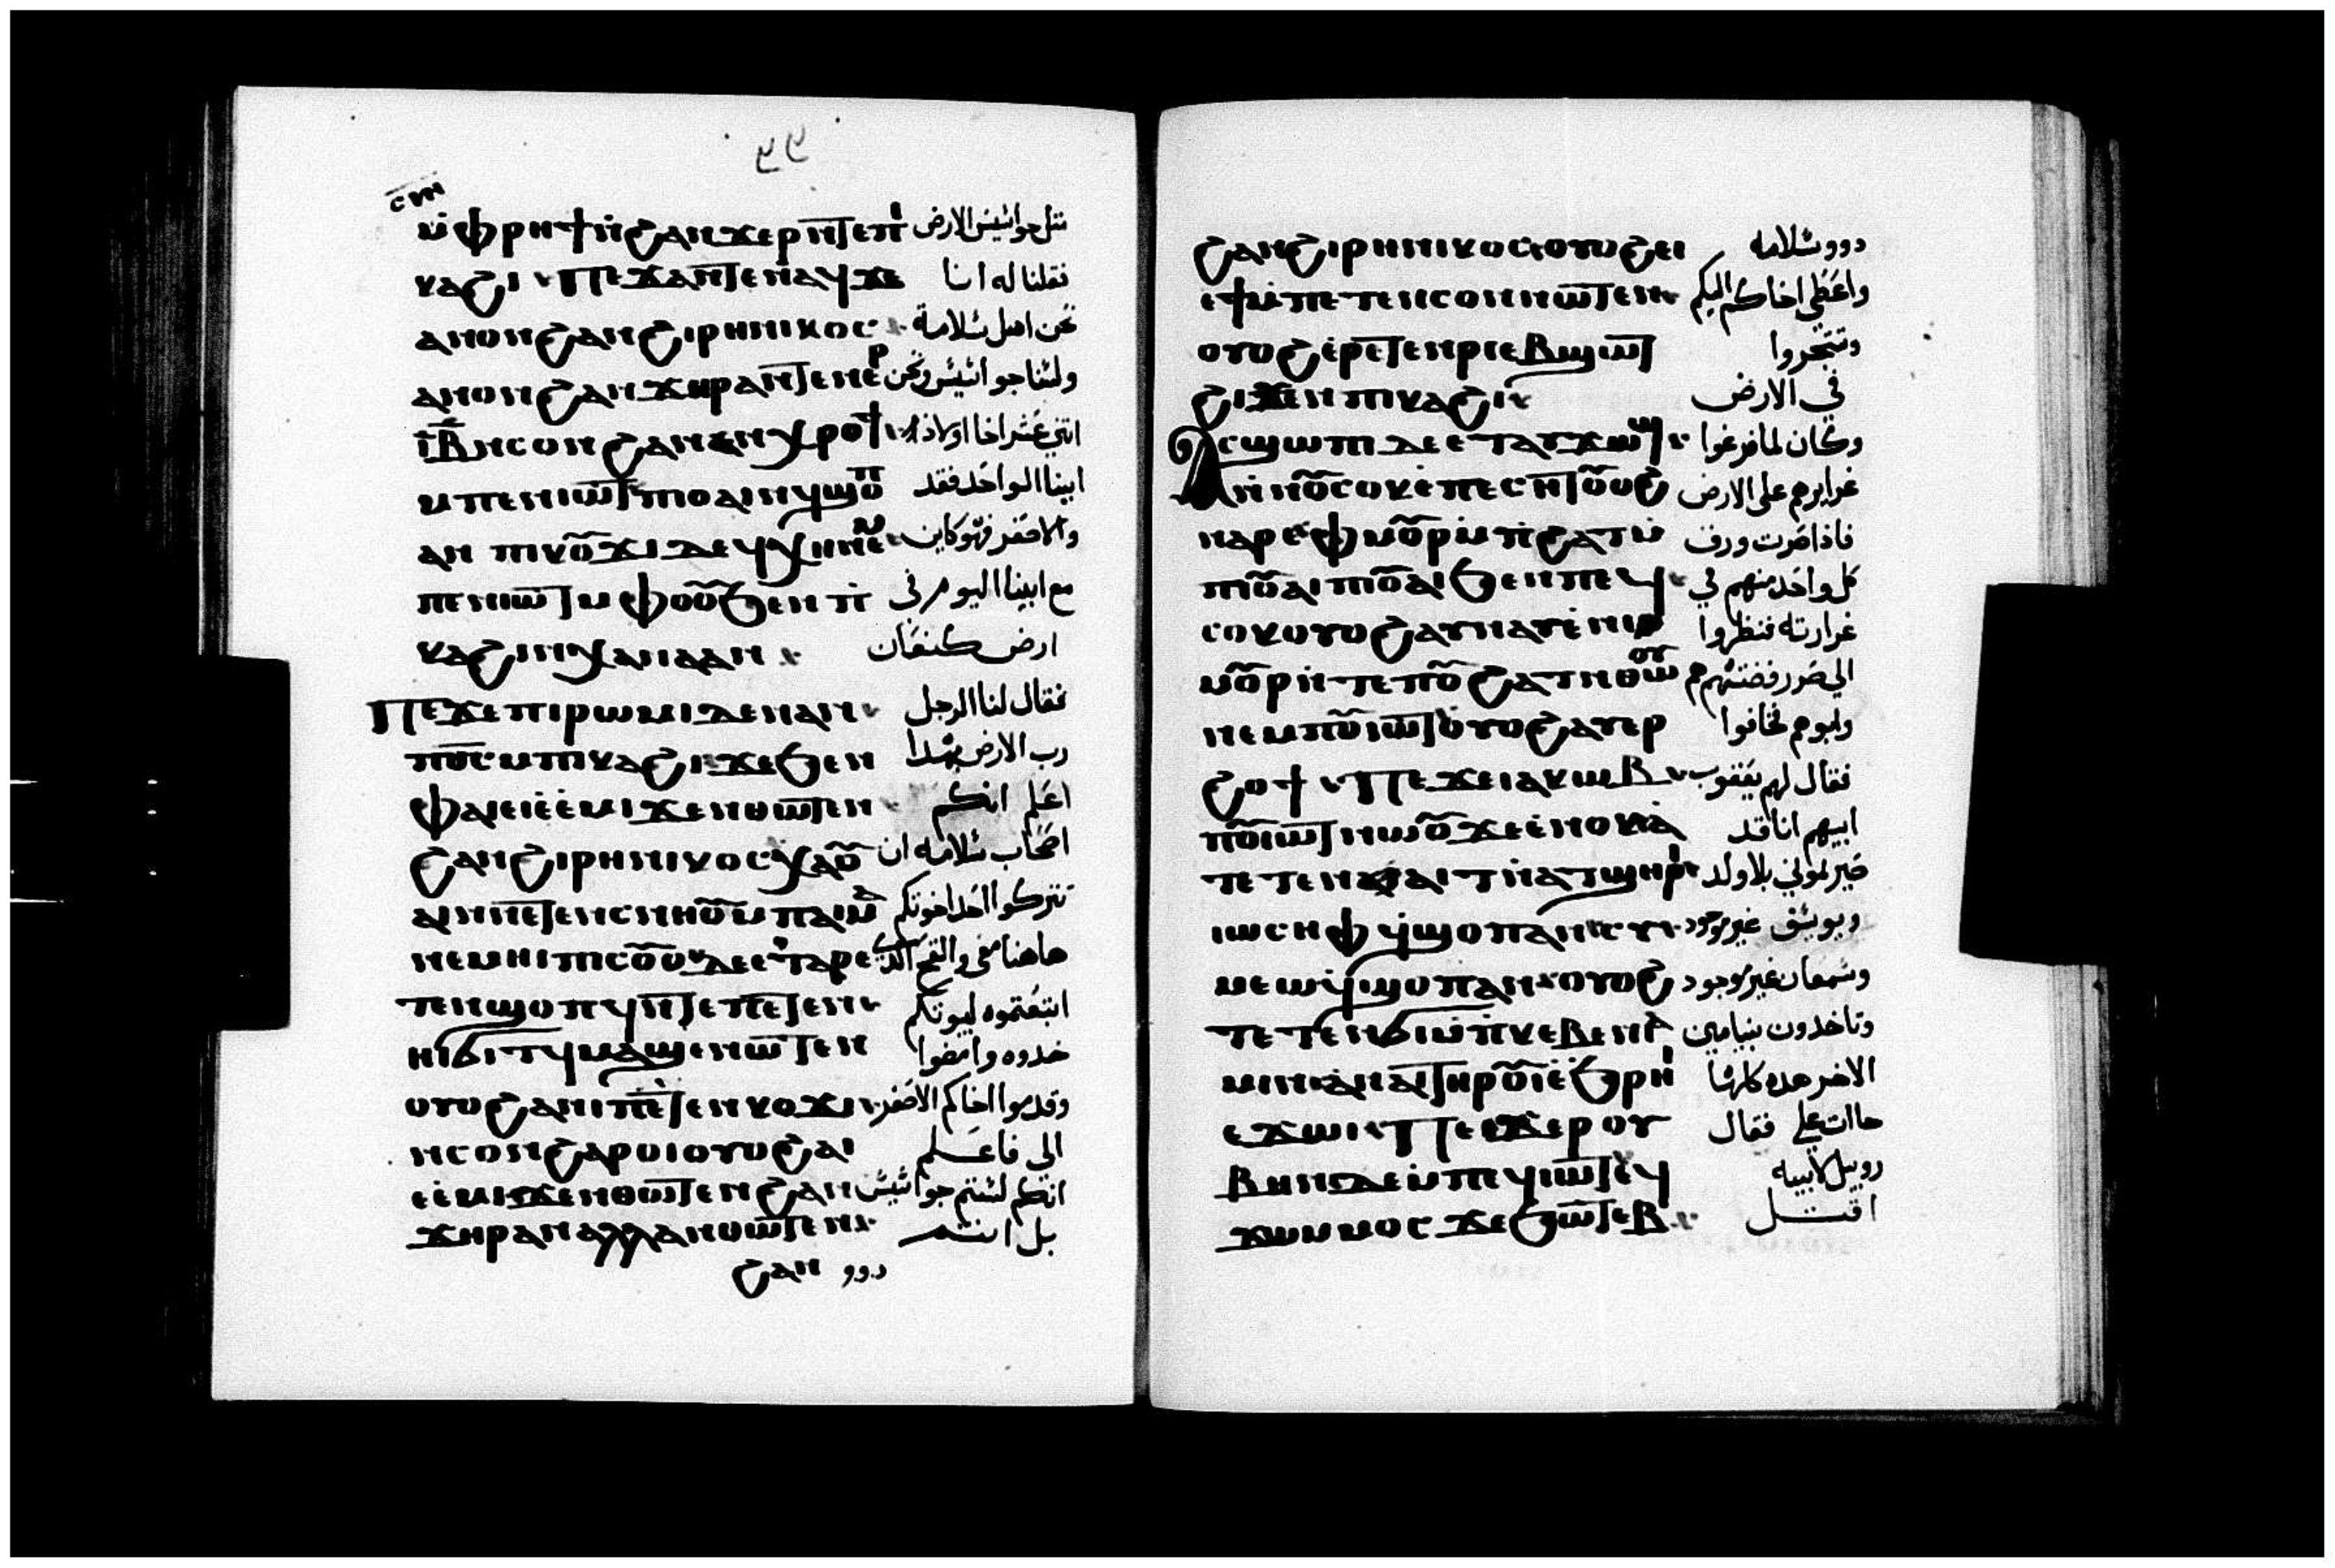 ⲥⲛⲏ
ⲙ̀ⲫⲣⲏϯ ⲛ̀ϩⲁⲛϫⲉⲣⲏⲧ ⲉⲡⲓ مثل جواسيس الارض
ⲕⲁϩⲓ ⲡⲉϫⲁⲛ ⲛⲁϥ ϫⲉ فقلنا له اننا
ⲁⲛⲟⲛϩⲁⲛϩⲓⲣⲏⲛⲓⲕⲟⲥ نحن اهل سلامة
ⲁⲛⲟⲛϩⲁⲛϫⲏⲣ ⲁⲛ ولسنا جواسيس ونحن
ⲓⲃ̅ⲛⲥⲟⲛϩⲁⲛϣⲏⲣⲓ اثني عشر اخا اولاد
ⲙⲡⲉⲛⲓⲱⲧ ⲡⲓⲟⲩⲁⲓ ⲛϥϣⲟⲡ ابينا الواحد فقد
ⲁⲛ ⲡⲓⲕⲟⲩϫⲓ ⲇⲉ ϥⲭⲏ ⲛⲉⲙ والاصغر فهو كاين
ⲡⲉⲛⲓⲱⲧ ⲙⲫⲟⲟⲩ ϧⲉⲛ ⲡ مع ابينا اليوم في
ⲕⲁϩⲓⲛⲭⲁⲛⲁⲁⲛ ارض كنعان
ⲡⲉϫⲉⲡⲓⲣⲱⲙⲓⲇⲉⲛⲁⲛ فقال لنا الرجل
ⲡϭⲥⲙⲡⲓⲕⲁϩⲓϫⲉϧⲉⲛ رب الارض بهذا
ⲫⲁⲓⲉⲓⲉ̀ⲉⲙⲓϫⲉⲛⲑⲱⲧⲉⲛ اعلم انكم
ϩⲁⲛϩⲓⲣⲏⲛⲓⲕⲟⲥⲭⲁⲟⲩ اصحاب سلامه ان
ⲁⲓⲛⲛⲉⲧⲉⲛⲥⲛⲏⲟⲩⲙⲡⲁⲓⲙⲁ تتركوا احد اخوتكم
ⲛⲉⲙⲏⲓⲡⲓⲥⲟⲩⲟⲇⲉⲉⲧⲁⲣⲉ هاهنا معي والقمح الذي
ⲧⲉⲛϣⲟⲡϥⲛⲧⲉⲛⲉⲧⲉⲛ ابتعتموه لبيوتكم
ⲏⲓϭⲓⲧϥⲙⲁϣⲉⲛⲱⲧⲉⲛ خدوه وامضوا
ⲟⲩⲟϩⲁⲛⲓⲡⲉⲧⲉⲛⲕⲟϫⲓ وقدموا اخاكم الاصغر
ⲛⲥⲟⲛϩⲁⲣⲟⲓⲟⲩⲟϩⲁⲓ الي فاعلم
ⲉⲉ̀ⲙⲓϫⲉⲛⲑⲱⲧⲉⲛϩⲁⲛ انكم لستم جواسيس
ϫⲏⲣⲁⲛⲁⲗⲗⲁⲛⲑⲱⲧⲉⲛ بل انتم
ϩⲁⲛ دوو
ϩⲁⲛϩⲓⲣⲏⲛⲓⲕⲟⲥⲟⲩⲟϩⲉⲓ دوو سلامه
ⲉϯⲙ̀ⲡⲉⲧⲉⲛⲥⲟⲛⲛⲱⲧⲉⲛ واعطي اخاكم اليكم
ⲟⲩⲟϩⲉ̀ⲣⲉⲧⲉⲛⲣⲓⲉⲃϣⲱⲧ وتتجروا
ϩⲓϫⲉⲛⲡⲓⲕⲁϩⲓ في الارض
ⲁⲥϣⲱⲡⲓⲇⲉⲉⲧⲁⲩϫⲱϣ وكان لما فرغوا
ⲛⲛⲟⲩⲥⲟⲕⲉ̀ⲡⲉⲥⲏⲧⲟⲩⲟϩ غرايرهم على الارض
ⲛⲁⲣⲉⲫⲙⲟⲣⲙⲡϩⲁⲧⲙ فاذا صرت ورق
ⲡⲓⲟⲩⲁⲓⲡⲓⲟⲩⲁⲓϧⲉⲛⲡⲉϥ كل واحد منهم في
ⲥⲟⲕⲟⲩⲟϩⲁⲩⲛⲁⲩⲉ̀ غرارته فنظروا
ⲙⲟⲣⲛ̀ⲧⲉⲡⲟⲩϩⲁⲧⲛⲑⲱⲟⲩ الي صرر فضتهم هم
ⲛⲉⲙⲡⲟⲩⲓⲱⲧⲟⲩⲟϩⲁⲩⲉⲣ وابوهم فخافوا
ϩⲟϯ ⲡⲉϫⲉⲓⲁⲕⲱⲃ فقال لهم يعقوب
ⲡⲟⲩⲓⲱⲧⲛⲱⲟⲩϫⲉⲁⲛⲟⲕⲁ ابيهم انا قد
ⲧⲉⲧⲉⲛⲁⲓⲧⲛⲁⲧϣⲏⲣⲓ صيرتموني بلا ولد
ⲓⲱⲥⲏⲫϥϣⲟⲡⲁⲛⲥⲩ ويوسف غير موجود
ⲙⲉⲱⲛϥϣⲟⲡⲁⲛⲟⲩⲟϩ وشمعان غير موجود
ⲧⲉⲧⲉⲛϭⲓⲙ̀ⲡⲕⲉⲃⲉⲛⲓⲁ وتاخدون بنيامين
ⲙⲓⲛⲁⲛⲁⲓⲧⲏⲣⲟⲩⲓ̀ⲉϧⲣⲏⲓ الاخر هده كلها
ⲉϫⲱⲓ ⲡⲉϫⲉⲣⲟⲩ حاات علي فقال
ⲃⲏⲛⲇⲉⲙ̀ⲡⲉϥⲓⲱⲧⲉϥ روبيل لابيه
ϫⲱⲙⲙⲟⲥϫⲉϧⲱⲧⲉⲃ اقتل